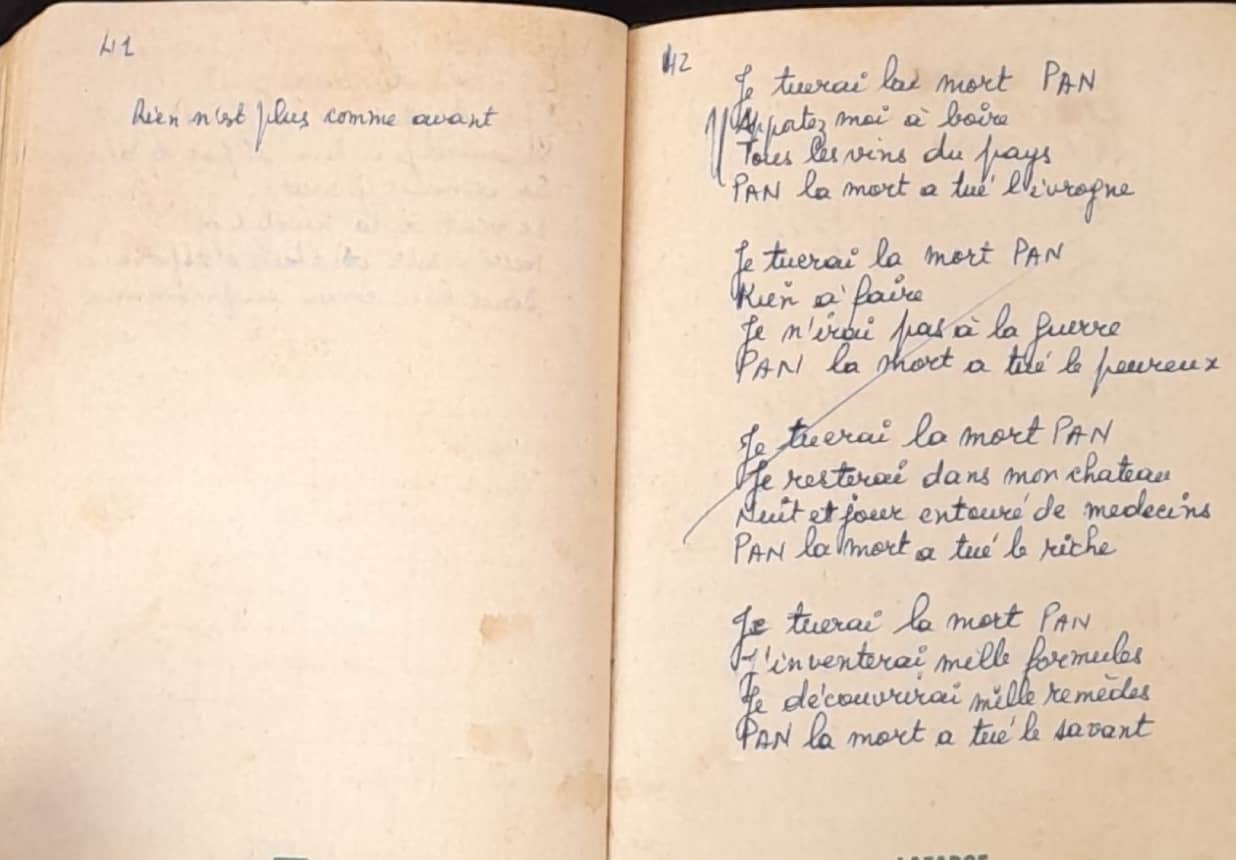 41
Rien n'est plus comme avant
42
Je tuerai la mort PAN
Apportez moi à boire
Tous les vins du pays
PAN la mort a tué l'ivrogne
Je tuerai la mort PAN
Rien à faire
Je n'irai pas à la guerre
PAN la mort a tué le peureux
Je tuerai la mort PAN
Je resterai dans mon chateau
Nuit et jour entouré de medecins
PAN la mort a tué le riche
Je tuerai la mort PAN
J'inventerai mille formules
Je découvrirai mille remèdes
PAN la mort a tué le savant